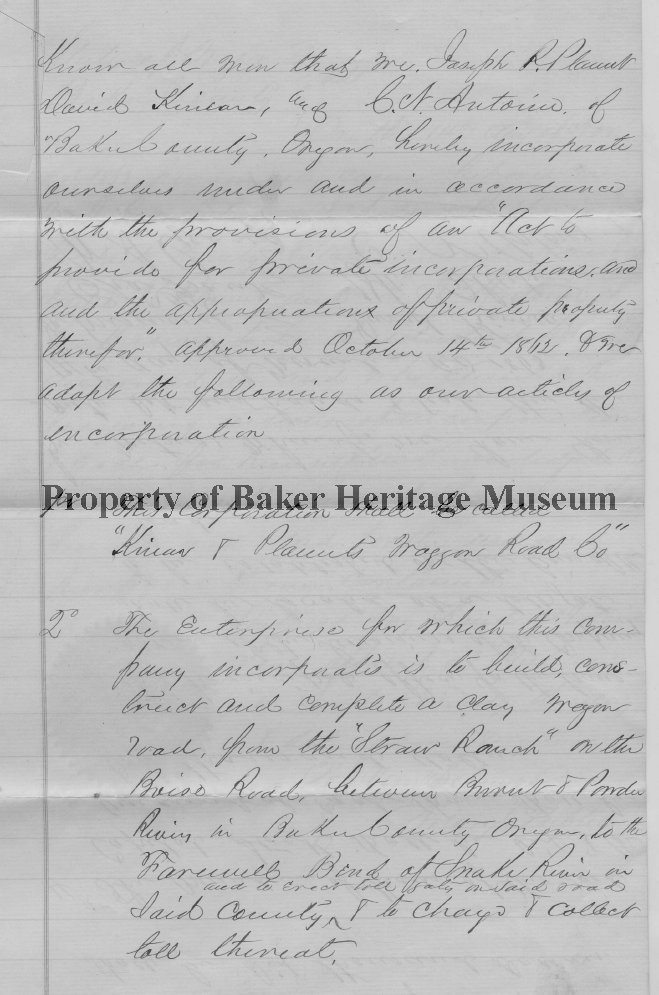 Know all men that we, Joseph R. Plaunt
David Kinear, and C. N. Antoine, of
Baker County, Oregon, hereby incorporate
ourselves under and in accordance
with the provisions of an "Act to
provide for private incorporations, and
and the appropriations of private property
therefor," approved October 14th 1862. & we
adopt the following as our articles of
incorporation
Property of Baker Heritage Museum
1° This Corporation shall be called
"Kinear & Plaunts Waggon Road Co"
2° The Enterprise for which this com-
pany incorporates is to build, cons-
truct and complete a clay wagon
road, from the "Straw Ranch" on the
Boise Road, between Burnt & Powder
Rivers in Baker County Oregon, to the
Farewell Bend of Snake River in
and to erect toll gates on said road
said County, ^ & to charge & collect
toll thereat.